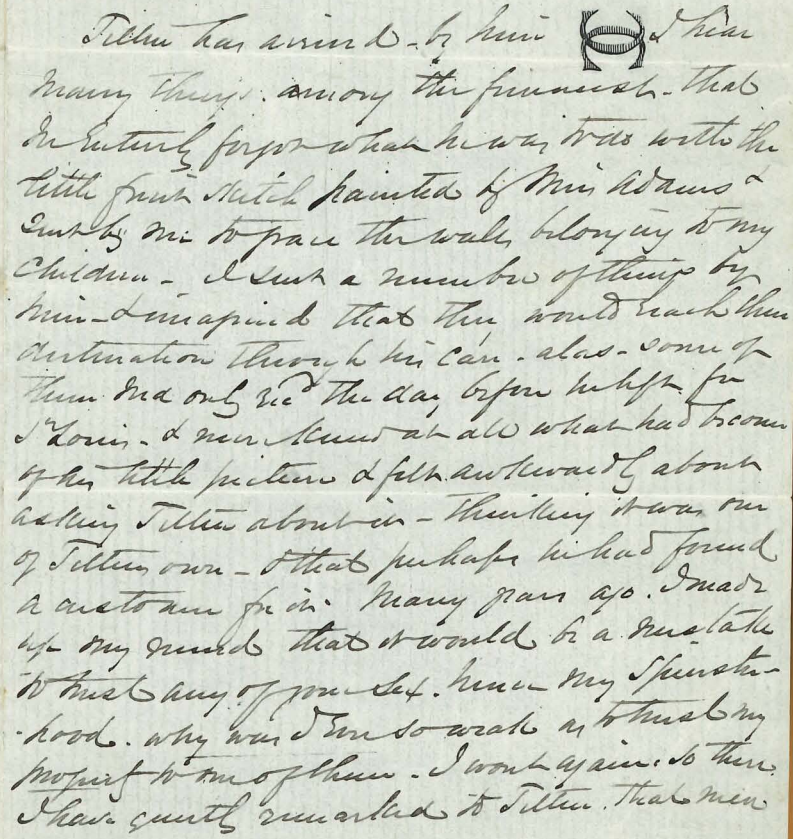 Tilton has arrived - by him I hear
many things. among the funniest - that
he entirely forgot what he was to do with the
little fruit sketch painted by Miss Adams &
sent by me to grace the walls belonging to my
children - I sent a number of things by
him - & imagined that they would reach their
destination through his care - alas - some of
them Ned only recd the day before he left for
St Louis - & never knew at all what had become
of his little picture & felt awkwardly about
asking Tilton about it - thinking it was one
of Tiltons own - & that perhaps he had found
a customer for it. Many years ago. I made
up my mind that it would be a mistake
to trust any of your sex. hence my spinster-
-hood. why was I ever so weak as to trust my
property to one of them - I wont again. So there.
I have gently remarked to Tilton. that men